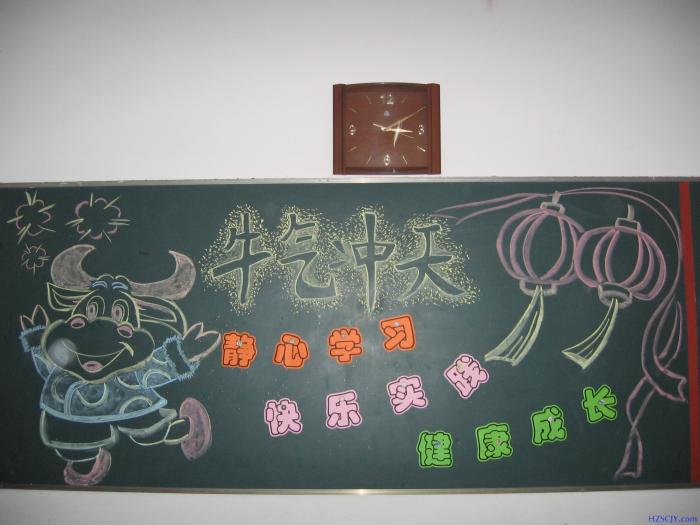 12
3
6
9
牛气冲天
静心学习
快乐实践
健康成长
HZSCJY.com